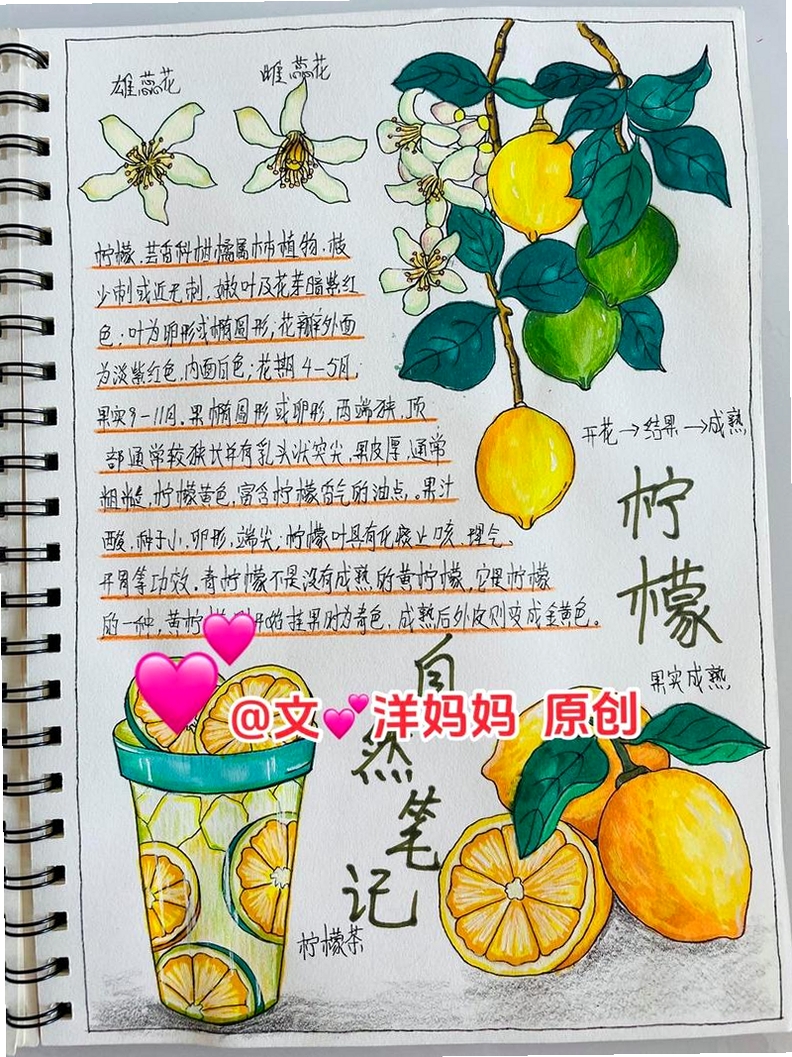 雄蕊花
雌蕊花
柠檬，芸香科柑橘属植物，枝
少刺或近无刺，嫩叶及花芽暗紫红
色；叶为卵形或椭圆形；花瓣外面
为淡紫红色，内面白色；花期4-5月，
果实9-11月。果椭圆形或卵形，两端狭，顶
部通常较狭长并有乳头状突尖，果皮厚，通常
粗糙，柠檬黄色，富含柠檬香气的油点。果汁
酸，种子小，卵形，端尖，柠檬叶具有化痰止咳、理气、
开胃等功效。青柠檬不是没有成熟的黄柠檬，它是柠檬
的一种，黄柠檬开始挂果时为青色，成熟后外皮则变成金黄色。
开花→结果→成熟
柠檬
果实成熟
自然笔记
@文💕洋妈妈 原创
柠檬茶